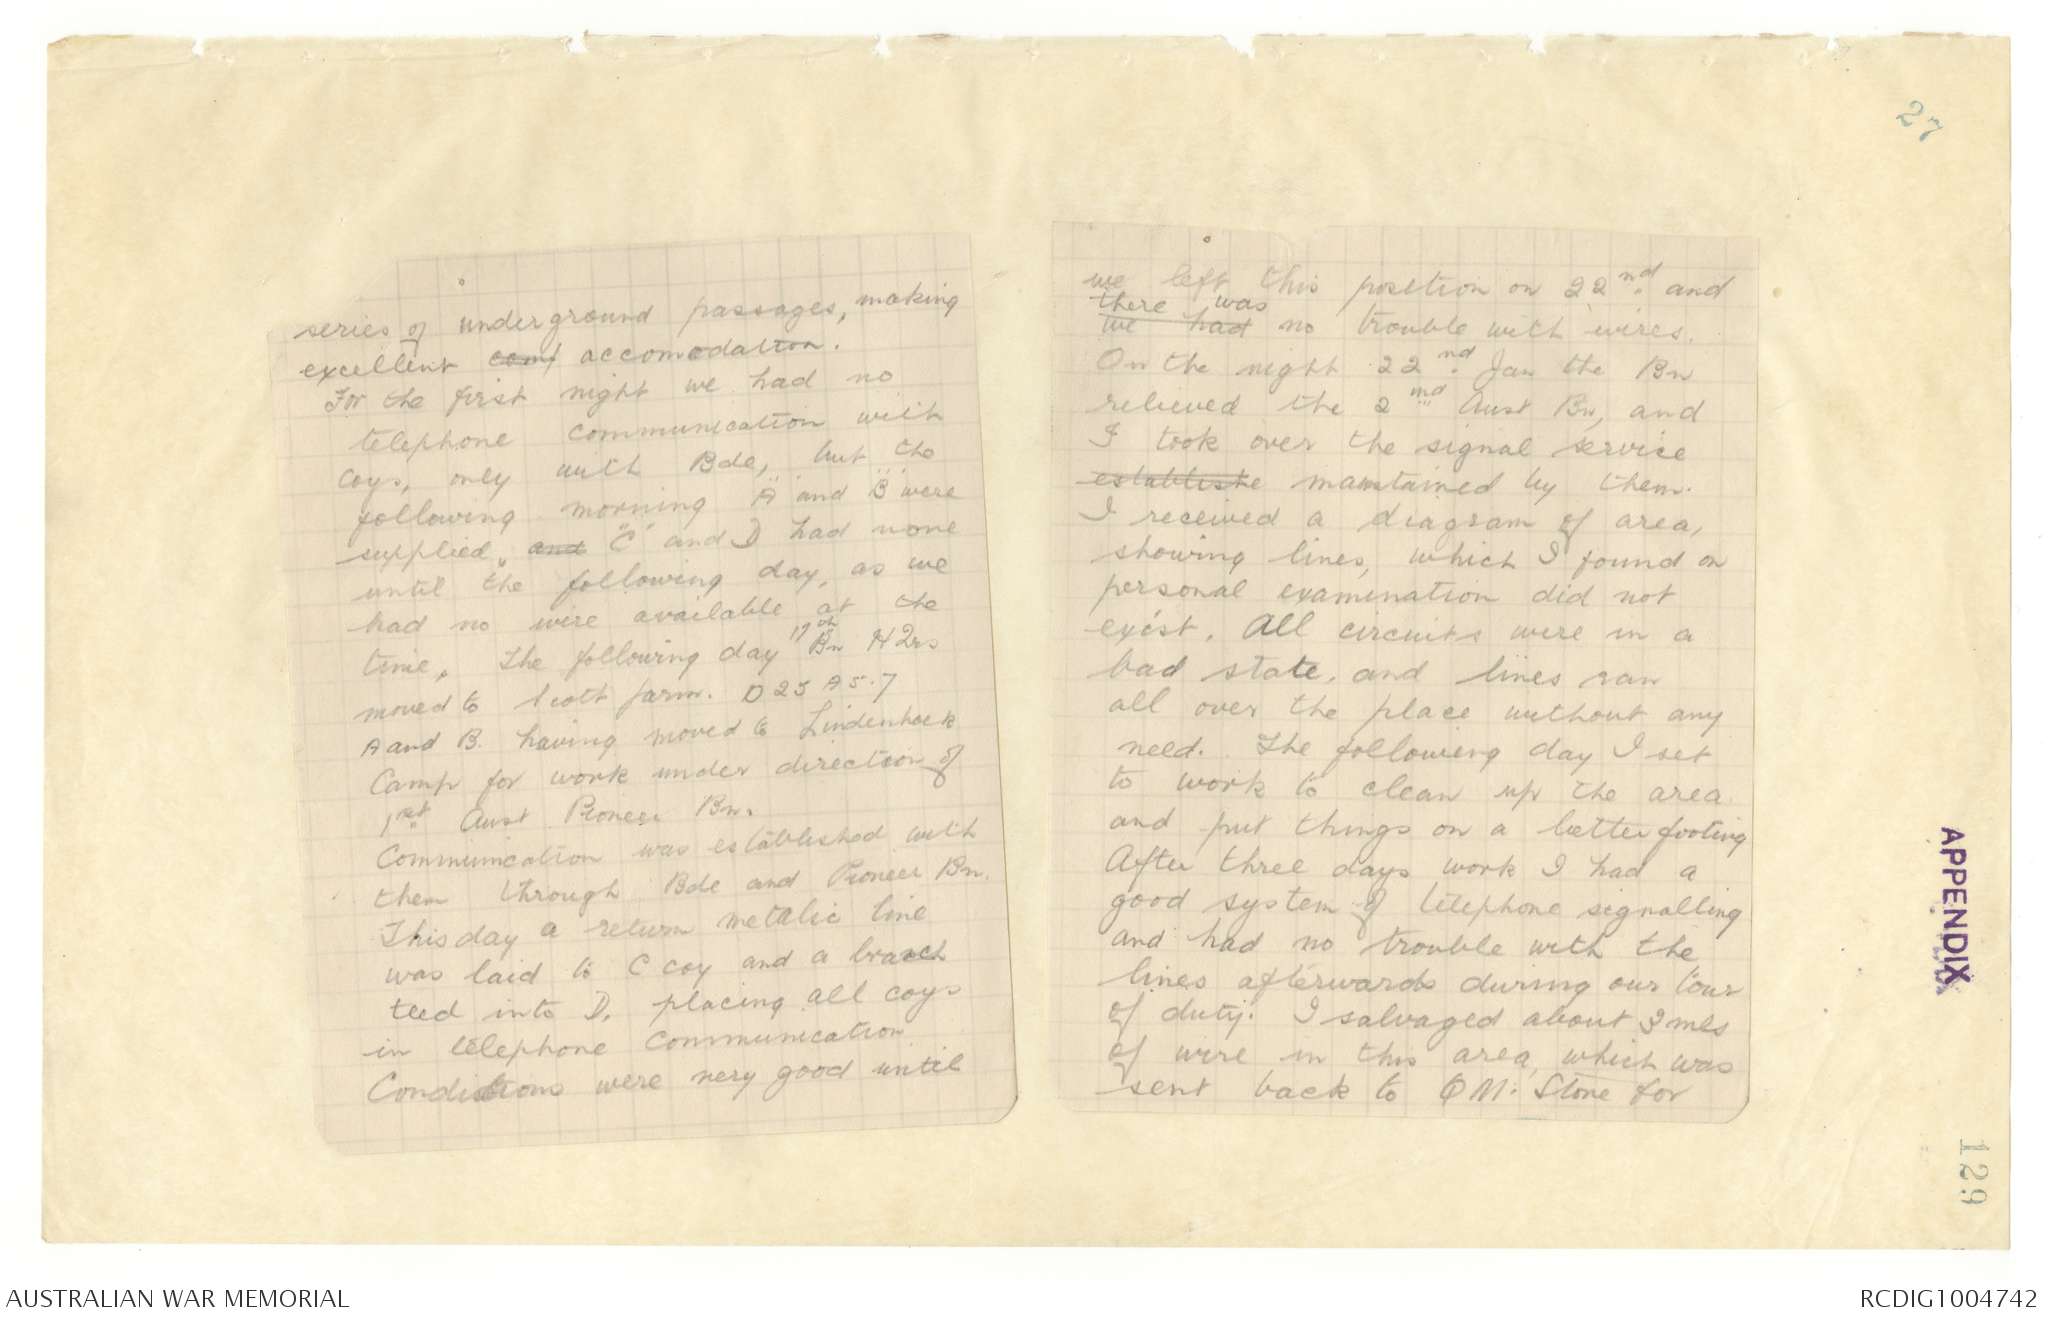 27
series of underground passages, making
excellent comf accomodation.
For the first night we had no
telephone communication with
coys, only with Bde, but the
following morning "A" and "B" were
supplied, and "C" and D had none
until the following day, as we
had no wire available at the
time. The following day 17th Bn HQrs
moved to Scott farm. D 25 A 5.7
A and B. having moved to Lindenhoek
Camp for work under direction of
1st Aust Pioneer Bn.
Communication was established with
them through Bde and Pioneer Bn.
This day a return metalic line
was laid to C coy and a branch
teed into D. placing all coys
in telephone communication
Conditions were very good until
we left this position on 22nd. and
there was
we had no trouble with wires.
On the night 22nd. Jan the Bn
relieved the 2nd Aust Bn, and
I took over the signal service
establishe maintained by them.
I received a diagram of area,
showing lines, which I found on
personal examination did not
exist. All circuits were in a
bad state, and lines ran
all over the place without any
need. The following day I set
to work to clean up the area
and put things on a better footing
After three days work I had a
good system of telephone signalling
and had no trouble with the
lines afterwards during our tour
of duty. I salvaged about 3 mls
of wire in this area, which was
sent back to QM. Store for
APPENDIX
129
AUSTRALIAN WAR MEMORIAL
RCDIG1004742